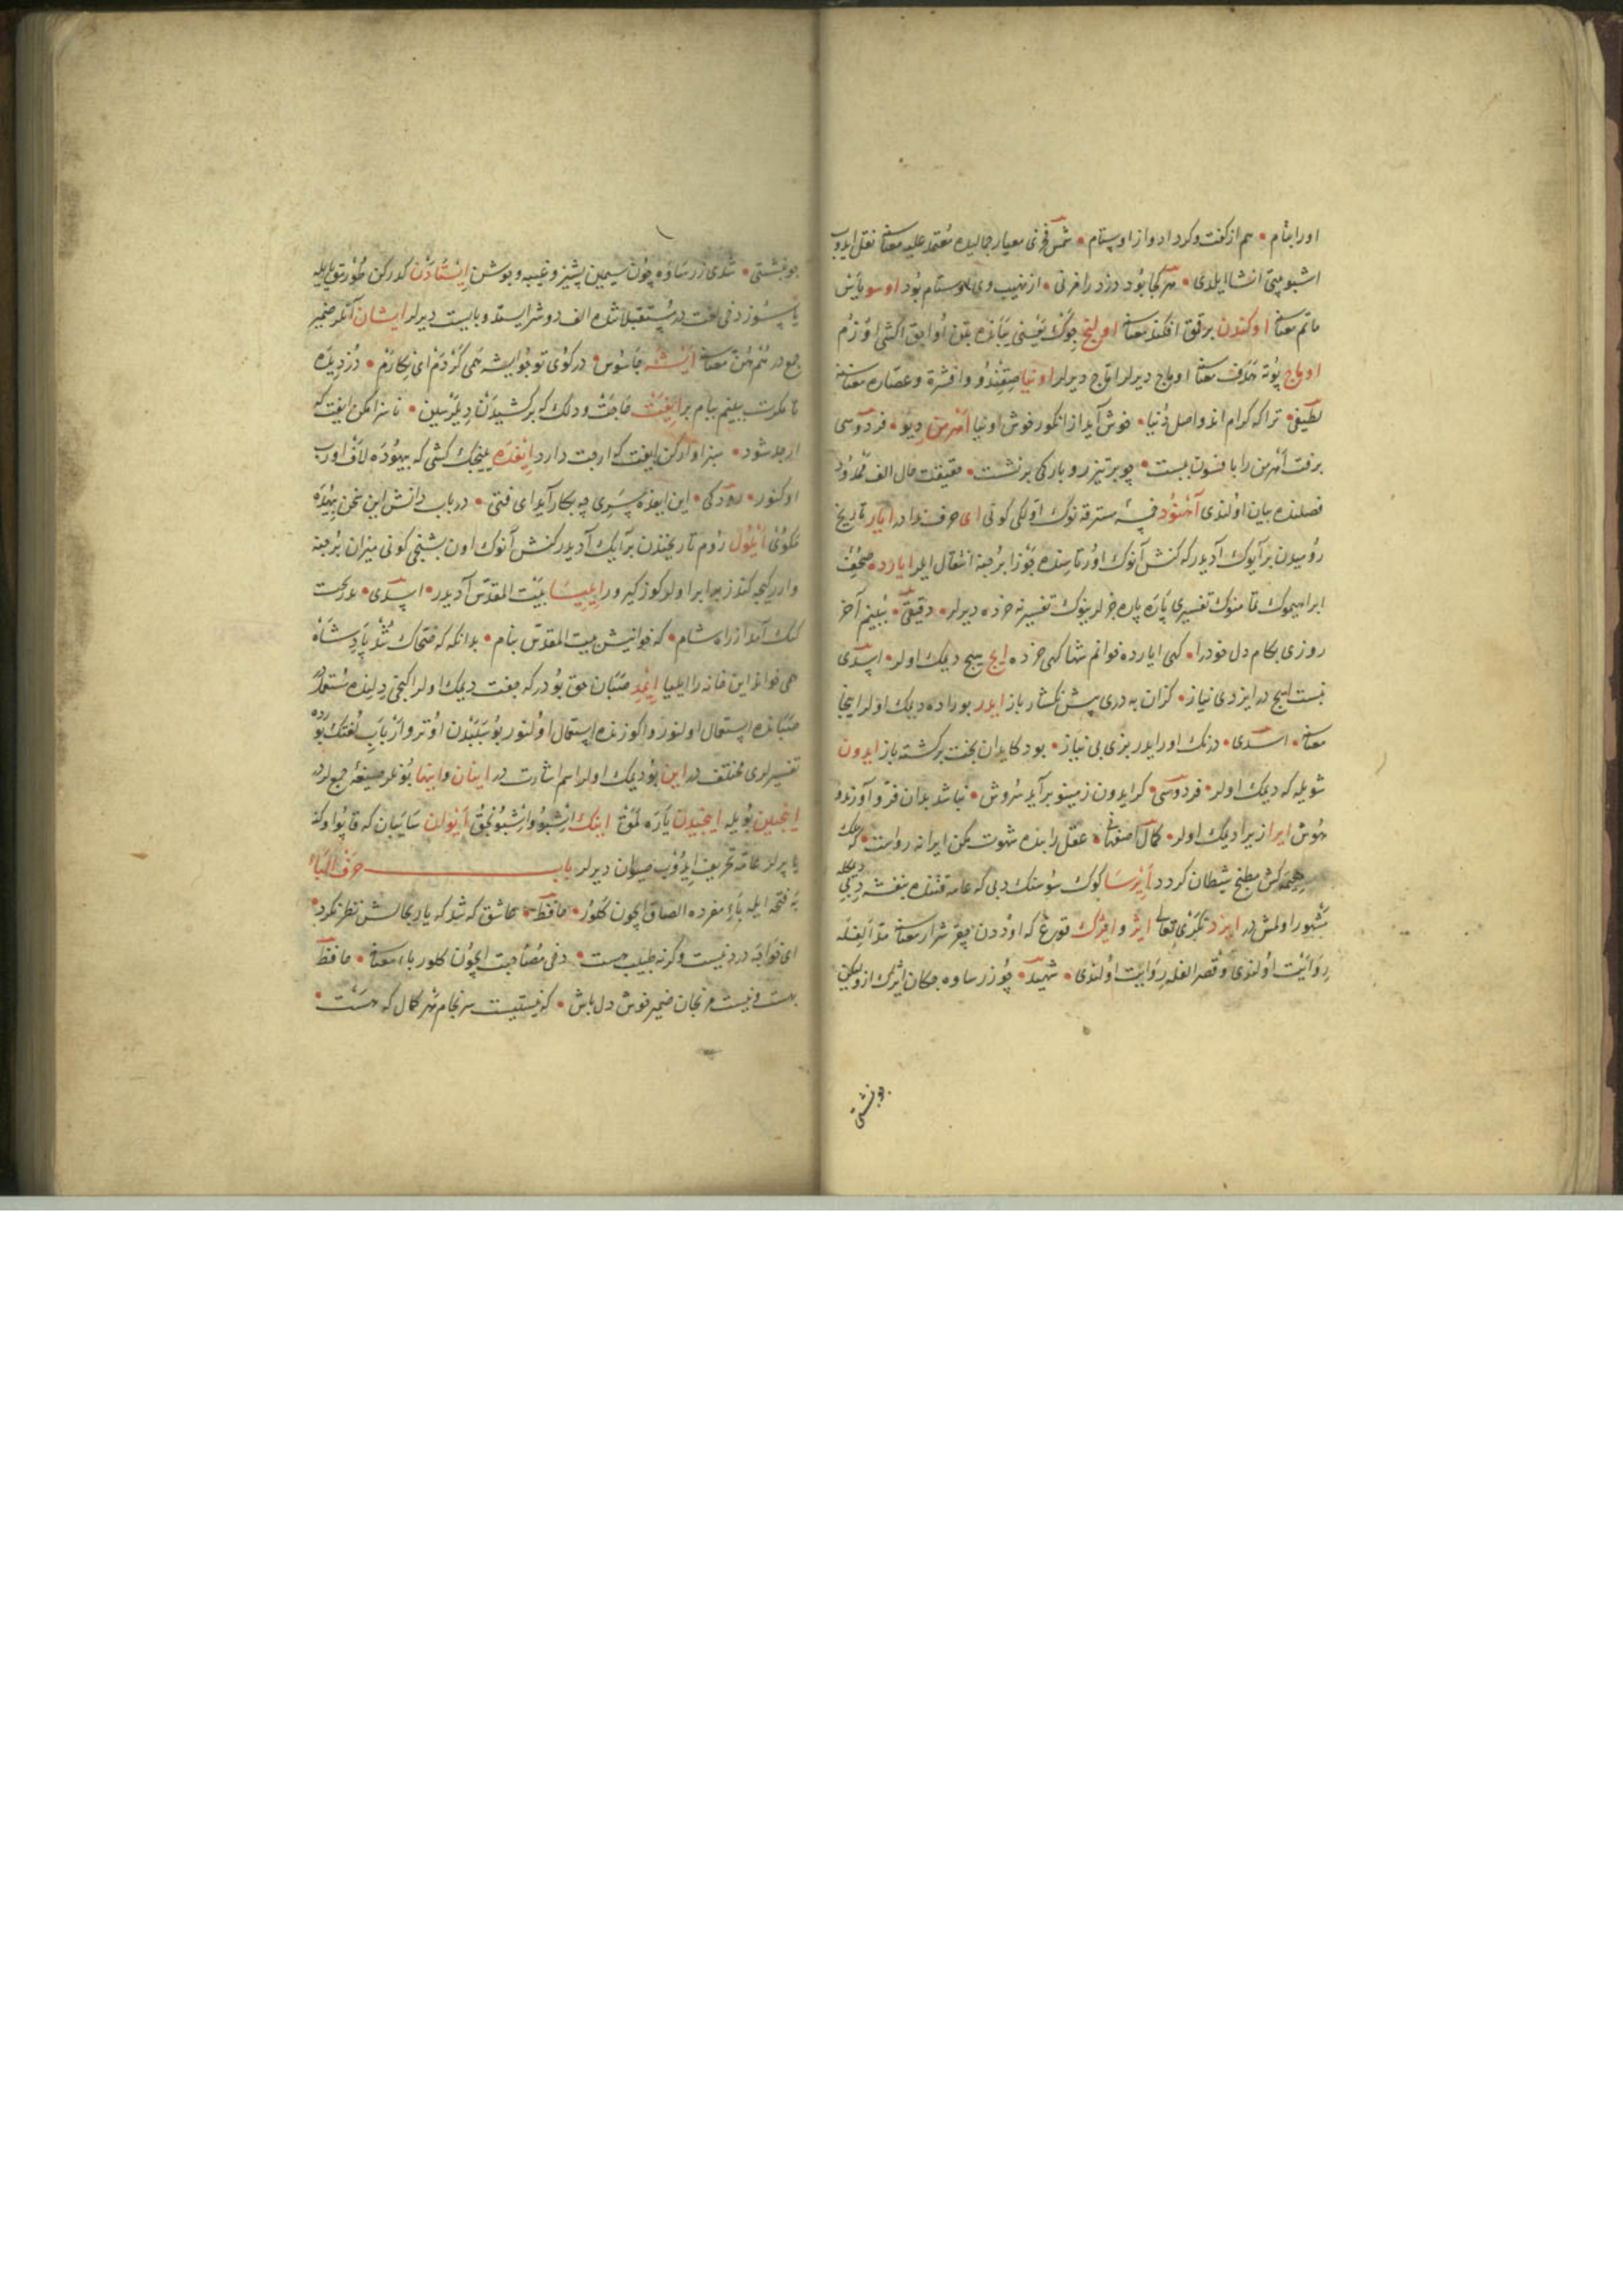 اورا بنام • هم از گفت و کرد او و از اوستام • شمس فخری معیار جمالیده معتمد علیه معناسنه نقل ایدوب
اشبو بیتی انشا ایلدی • هر کجا بود درزد را فرنی • از نهیب وی اوستام بود اوسو یاس
ماتم معناسنه اوکندن برقق افکند معناسنه اولنج
اوماج بوته هدف معناسنه اوماج دیرلر اماج دیرلر اونیا صقندو و افشره و عصاره معناسنه
لطیفی • ترا که کرام اند و اصل دنیا • خوش آید از انگور خوش اونیا اهرمن دیو • فردوسی
برفت اهرمن را بافسون ببست • چو بر تیزرو بارکی برنشست • حقیقت حال الف ممدوده
فصلنده بیان اولندی آخنود خمسه مسترقه نوک اولکی کونی ای حرف ندادر ایار تاریخ
رومیدن بر آیوک آدیدر که کنش آنوک اورتاسنده جوزا برجنه انتقال ایدر ایارده صحف
ابراهیموک تمامنوک تفسیری پاره پاره جزلرینوک تفسیرنه خرده دیرلر • دقیقی • ببینم آخر
روزی بکام دل خودرا • کهی ایارده خوانم شها کهی خرده ایچ هیچ دیمک اولر • اسدی
نیست ایچ در ایزدی نیاز • کزان به دری پیش نکشار باز ایدر بوراده دیمک اولر اینجا
معناسنه • اسدی • درنک اور ایدر بزی بی نیاز • بود کایدان بخت برکشته باز ایدون
شویله که دیمک اولر • فردوسی • کر ایدون زمینو برآید سروش • نباشد بدان فر و آورند و
هوش ایرا زیرا دیمک اولر • کمال اصفهانی • عقل را بنده شهوت مکن ایرا نه رواست • که ملک
هیمه کش مطبخ شیطان کردد ایرسا کوک سوسنک دبی که عامه قتنده بنفشه دبی دیمکله
مشهور اولمش در ایزد تکری تعالی ایژ و ایژک قورغ که اوددن چقر شرار معناسنه مد الفله
روایت اولندی و قصر الفله روایت اولندی • شهید • چو زر ساوه چکان ایژک ازو لیکن
چو بنشستی
چو بنشستی • شدی زر ساوه چون سیمین پشیز و غیبه و جوشن ایستادن
جمع در هم هن معناسنه ایشه جاسوس • در کوی تو جو ایشه همی کردم ای نکارم • دزدیده
تا مکرت ببینم ببام بر ایفت حاجت و دلک که برکشیدن دیکر بین • ناسزا مکن ایفت که
از بد شود • سزاوار کن ایفت که ارجت دارد ایفده یینجک کشی که بیهوده لاف اورب
اوکنور • رودکی • این ایفده پسری چه بکار آید ای فتی • در باب دانش این سخن بیهده
مکوی ایلول روم تاریخندن بر آیک آدیدر کنش آنوک اون بشنجی کونی میزان برجنه
وارر کیجه کندز برابر اولر کوز کیرور ایلیسا بیت المقدس آدیدر • اسدی • بدرخت
کنک آمد از راه شام • که خوانیش بیت المقدس بنام • بدانکه که ضحاک شد پادشاه
همی خواند این خانه را ایلیا ایمد صبان حق بودر که جفت دیمک اولر اکنجی دلنده مستعملدر
صباننده استعمال اولنور و اکوزنده استعمال اولنور بو سببدن اوترو ارباب لغتک بورده
تفسیرلری مختلف در این بو دیمک اولر اسم اشارت در اینان و اینها بونلر صیغه جمعلردر
اینجنین بویله اینجیدن پاره لمق اینک اشبو و اشبونجق ایوان سایبان که قاپو اوکنه
یاپرلر عامه تحریف ایدوب صیوان دیرلر باب حرف الباء
به فتحه ایله باء مفرده الصاق ایچون کلور • حافظ • عاشق که شد که یار بحالش نظر نکرد •
ای خواجه درد نیست وکرنه طبیب هست • دخی مصاحبت ایچون کلور باء معناسنه • حافظ
بهست و نیست مرنجان ضمیر خوش دل باش • که نیستیست سرنجام هر کمال که هست •